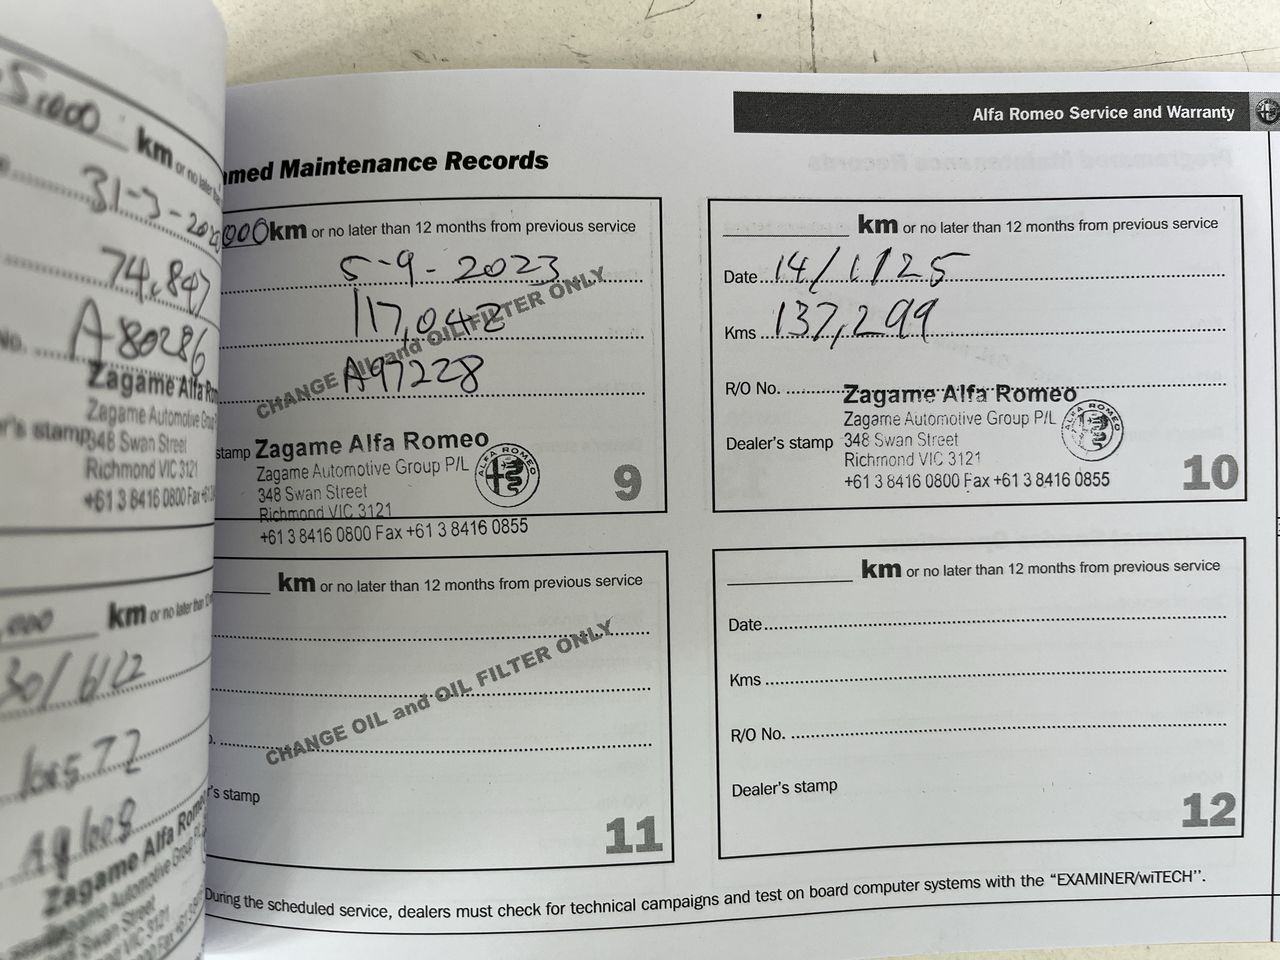 Alfa Romeo Service and Warranty
5,000 km or no later
31-3-202
74,847
No. A80286
Zagame Alfa Rom
Zagame Automotive Group
r's stamp 348 Swan Street
Richmond VIC 3121
+61 3 8416 0800 Fax +61 3
,000 km or no later than
30/6/
Zagame Alfa Romeo
Zagame Automotive Group
Swan Street
VIC 3121
med Maintenance Records
000 km or no later than 12 months from previous service
5-9-2023
117,048
A97228
CHANGE OIL and OIL FILTER ONLY
stamp Zagame Alfa Romeo
Zagame Automotive Group P/L
348 Swan Street
Richmond VIC 3121
+61 3 8416 0800 Fax +61 3 8416 0855
ALFA ROMEO
9
km or no later than 12 months from previous service
Date 14/1/25
Kms 137,299
R/O No.
Zagame Alfa Romeo
Zagame Automotive Group P/L
Dealer's stamp 348 Swan Street
Richmond VIC 3121
+61 3 8416 0800 Fax +61 3 8416 0855
ALFA ROMEO
10
km or no later than 12 months from previous service
CHANGE OIL and OIL FILTER ONLY
r's stamp
11
km or no later than 12 months from previous service
Date
Kms
R/O No.
Dealer's stamp
12
During the scheduled service, dealers must check for technical campaigns and test on board computer systems with the "EXAMINER/wiTECH".